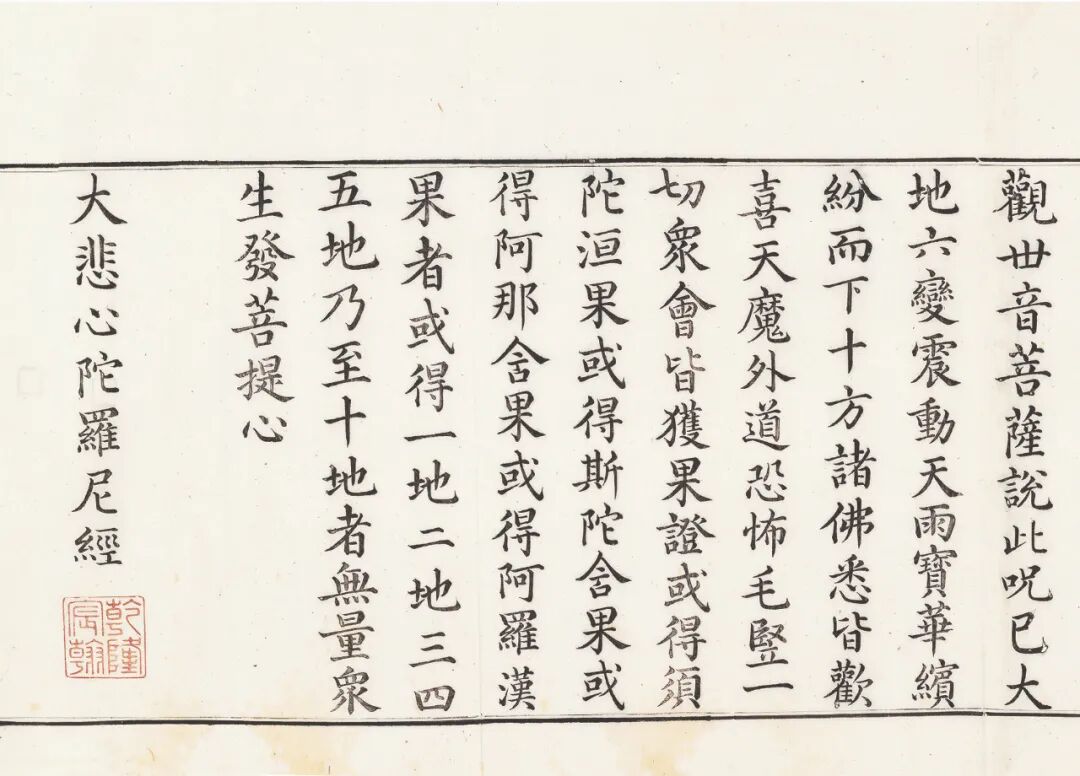 觀世音菩薩說此呪已大
地六變震動天雨寶華繽
紛而下十方諸佛悉皆歡
喜天魔外道恐怖毛竪一
切衆會皆獲果證或得須
陀洹果或得斯陀含果或
得阿那含果或得阿羅漢
果者或得一地二地三四
五地乃至十地者無量衆
生發菩提心
大悲心陀羅尼經
乾隆
宸翰